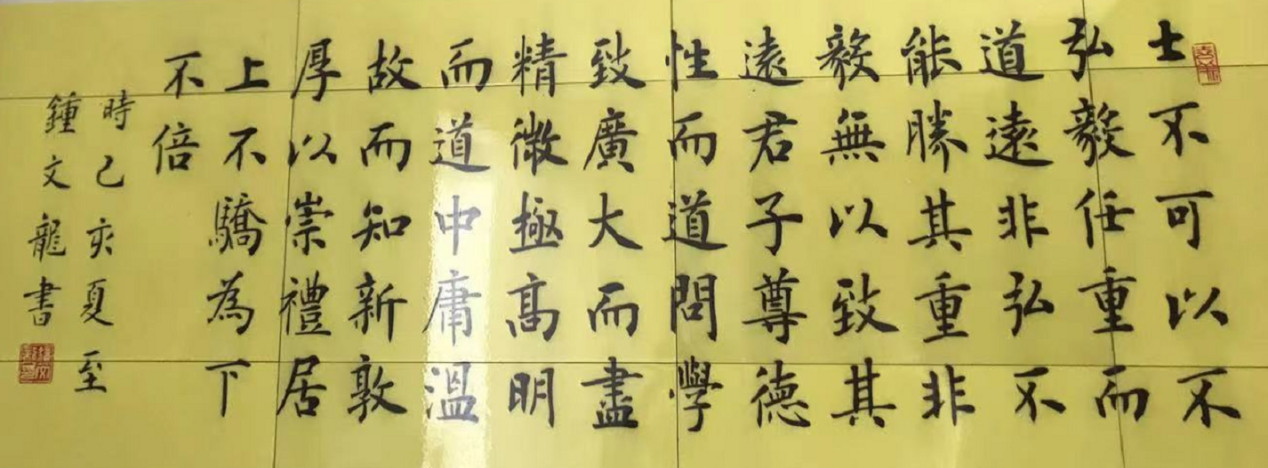 士不可以不
弘毅任重而
道遠非弘不
能勝其重非
毅無以致其
遠君子尊德
性而道問學
致廣大而盡
精微極高明
而道中庸溫
故而知新敦
厚以崇禮居
上不驕為下
不倍
時己亥夏至
鍾文龍書